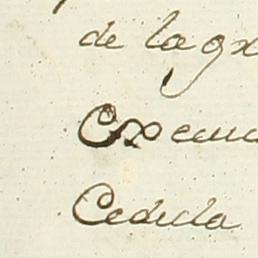 de la gx
Cxecu
Cedula